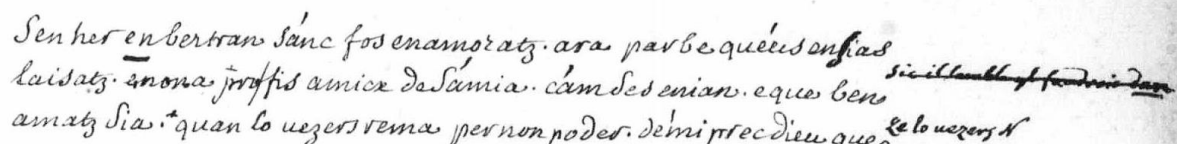 Senher en bertran sánc fos enamoratz. ara parbe quéus ensias
laisatz. enona profis amicx de sámia. cám des enian. e que ben
amatz sia. + quan lo uezers rema per non poder. démi prec dieu que
ze lo uezers N